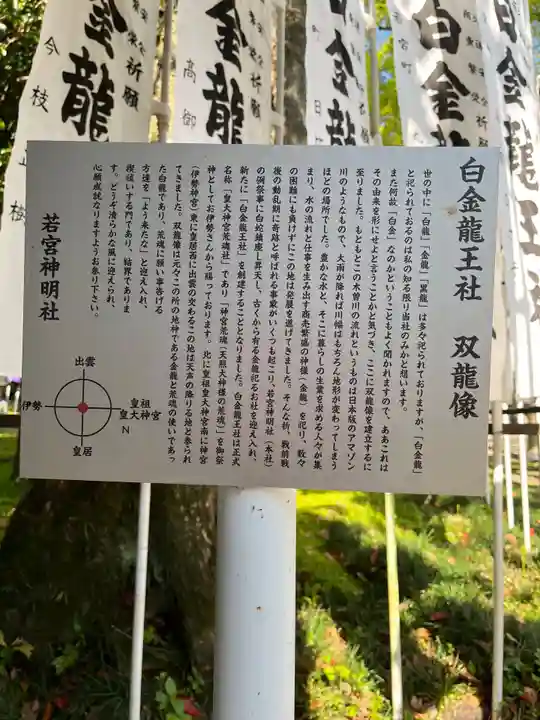 白金龍王社　双龍像
世の中に「白龍」「金龍」「黒龍」は多々祀られておりますが、「白金龍」
と祀られておるのは私の知る限り当社のみかと想います。
また何故「白金」なのかということもよく聞かれますので、ああこれは
その由来を形にせよと言うことかと気づき、ここに双龍像を建立するに
至りました。もともとこの木曽川の流れというものは日本版のアマゾン
川のようなもので、大雨が降れば川幅はもちろん地形が変わってしまう
ほどの場所でした。豊かな水と、そこに暮らしの生業を求める人々が集
まり、水の流れと仕事を生み出す商売繁盛の神様（金龍）を祀り、数々
の困難にも負けずにこの地は発展を遂げてきました。そんな折、戦前戦
後の動乱期に奇跡と呼ばれる事象がいくつも起こり、若宮神明社（本社）
の例祭事に白蛇鎮座し昇天し、古くから有る金龍祀るお社を迎え入れ、
新たに「白金龍王社」を創建することとなりました。白金龍王社は正式
名称「皇大神宮荒魂社」であり「神宮荒魂（天照大神様の荒魂）」を御祭
神としてお伊勢さんから賜っております。北に皇祖皇大神宮南に神宮
（伊勢神宮）東に皇居西に出雲の交わるこの地は天声の降りる地と参られ
てきました。双龍像は元々この所の地神である金龍と荒魂の使いであっ
た白龍であり、荒魂に願い事告げる
方達を「よう来たな」と迎え入れ、
禊祓いする門であり、結界でありま
す。どうぞ清らかな風に迎えられ、
心願成就なりますようお参り下さい。
若宮神明社
出雲
伊勢
皇祖
皇大神宮
N
皇居
金龍
祈願
今枝
金龍
祈願
高御
金龍
祈願
白金龍
祈願
白金龍王社